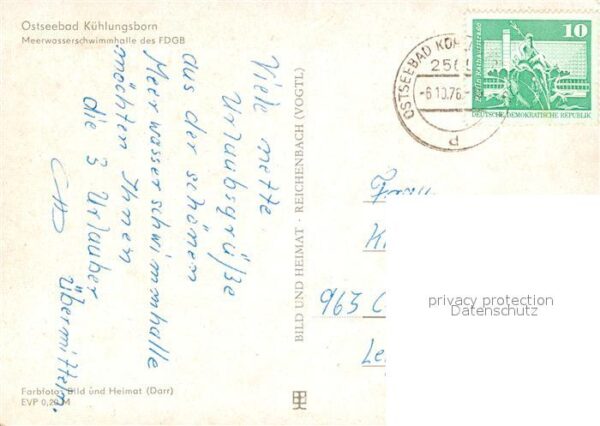 Ostseebad Kühlungsborn
Meerwasserschwimmhalle des FDGB
Viele nette
Urlaubsgrüße
aus der schönen
Meerwasserschwimmhalle
möchten Ihnen
die 3 Urlauber
übermitteln.
Farbfotos Bild und Heimat (Darr)
EVP 0,20 M
BILD UND HEIMAT · REICHENBACH (VOGTL)
OSTSEEBAD KÜHL
256
-6.10.76.-
d
10
Berlin Rathausstraße
DEUTSCHE DEMOKRATISCHE REPUBLIK
Frau
963 C
privacy protection
Datenschutz